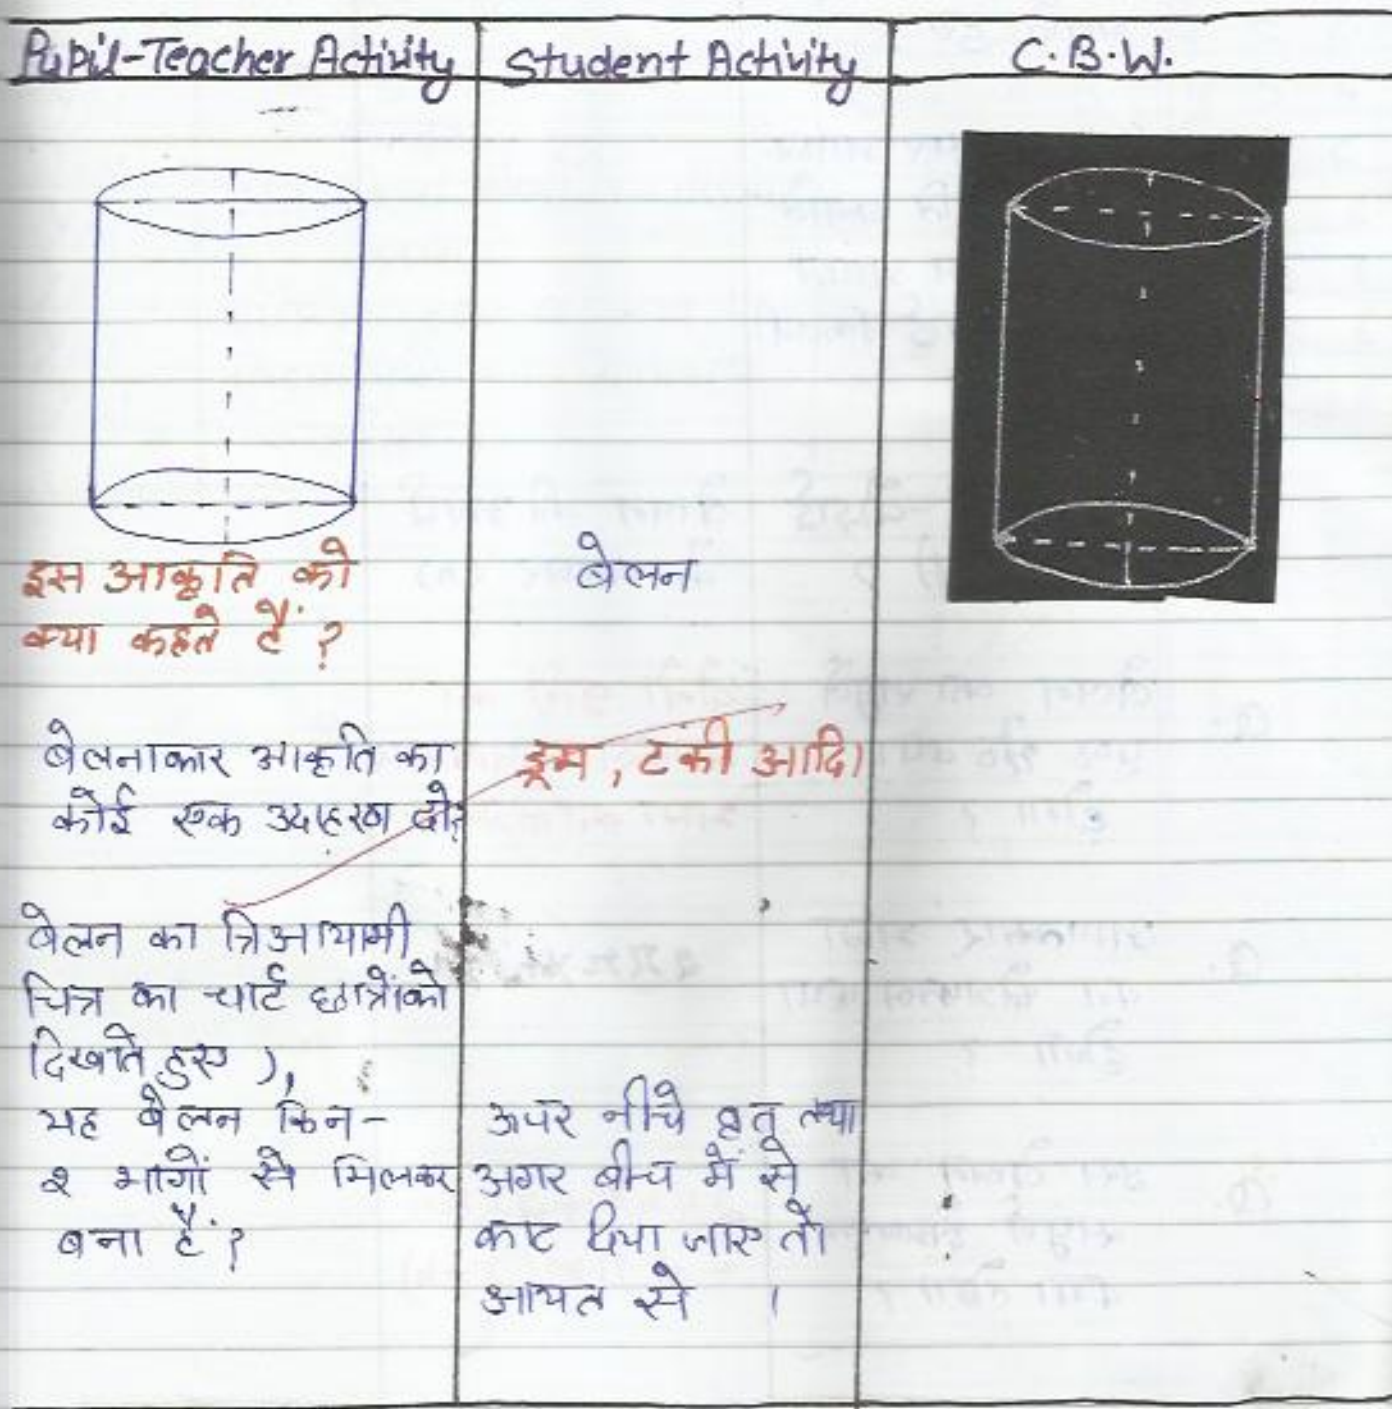 Pupil-Teacher Activity
Student Activity
C.B.W.
इस आकृति को
क्या कहते हैं ?
बेलन
बेलनाकार आकृति का
कोई एक उदाहरण दो?
ड्रम, टंकी आदि।
बेलन का त्रिआयामी
चित्र का चार्ट छात्रों को
दिखाते हुए ),
यह बेलन किन-
२ भागों से मिलकर
बना हैं ?
ऊपर नीचे वृत तथा
अगर बीच में से
काट दिया जाए तो
आयत से ।